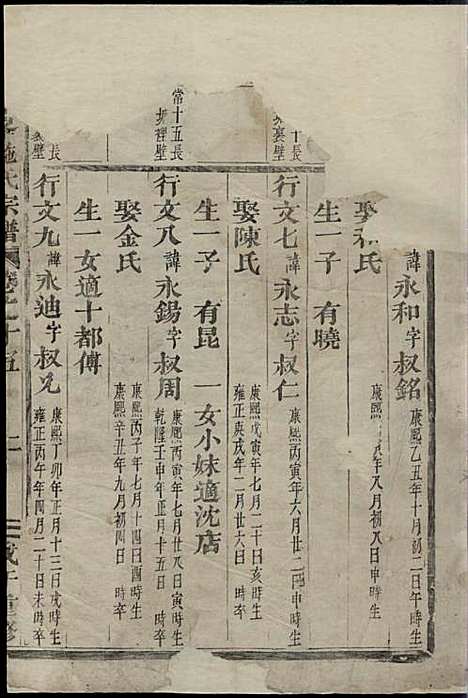 諱永和字叔銘 康熙乙丑年十月初二日午時生 午時卒
娶 氏 康熙 年八月初八日申時生
生一子 有曉
十長 裏壁
行文七諱永志字叔仁 康熙丙寅年六月廿二
娶陳氏 康熙戊寅年七月二十日亥時生 雍正庚戌年二月廿六日
生一子 有昆 一女小妹適沈店
常十五長 裡壁
行文八諱永錫字叔周 康熙丙寅年七月廿八日寅時生 乾隆壬申年正月十五日 時卒
娶金氏 康熙丙子年七月十四日酉時生 康熙辛丑年九月初四日
生一女適十都傅
長 壁
行文九諱永迪字叔允 康熙丁卯年正月十三日戌時生 雍正丙午年四月二十日未時卒
施氏宗譜 卷之十五 二 重修